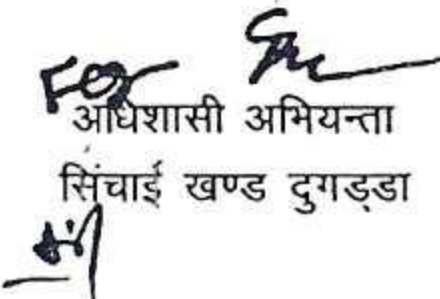 For
अधिशासी अभियन्ता
सिंचाई खण्ड दुगड्डा